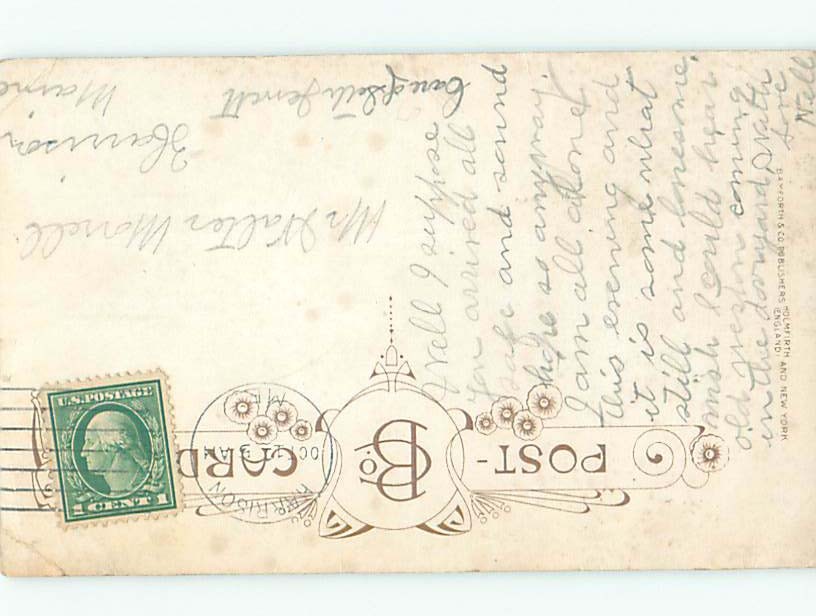 POST-CARD
BCo
BAMFORTH & CO. PUBLISHERS HOLMFIRTH (ENGLAND) AND NEW YORK
U.S. POSTAGE
1 CENT 1
HARRISON
OCT
AM
ME.
Well I suppose
you arrived all
safe and sound
hope so anyway.
I am all alone
this evening and
it is some what
still and lonesome,
wish I could hear
old coming
in the dooryard, with
love
Nell
Mr Walter Morrell
Harrison
Maine